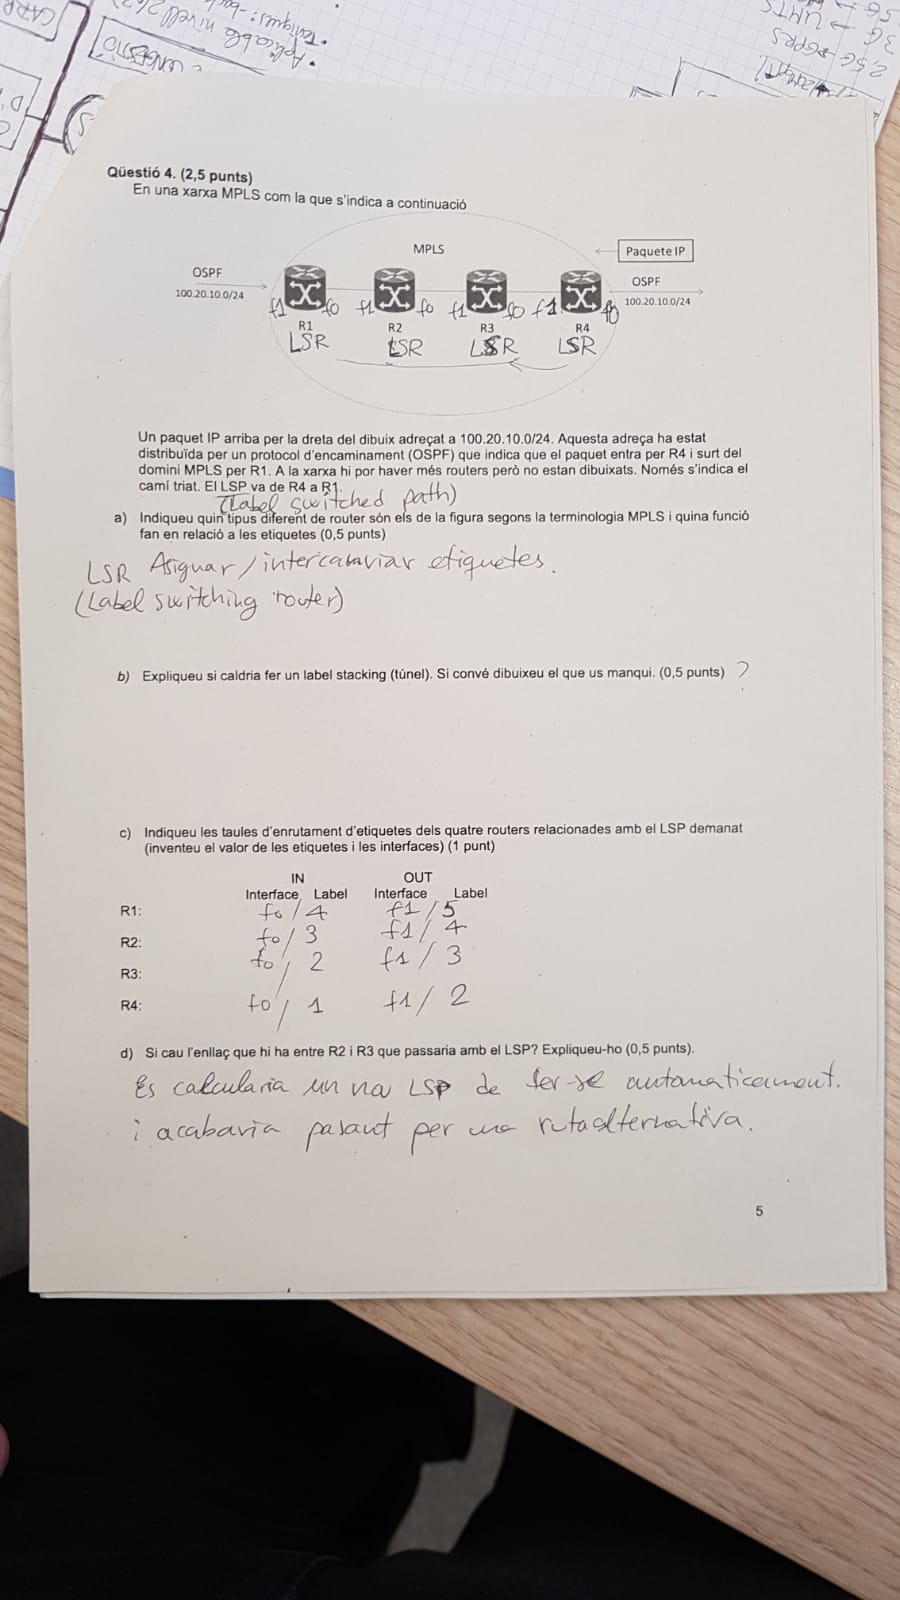 CARR
• Aplicable nivell 2/6?
CONGESTIÓ
3G → UMTS
2,5G → GPRS
Qüestió 4. (2,5 punts)
En una xarxa MPLS com la que s'indica a continuació
MPLS
Paquete IP
OSPF
100.20.10.0/24
OSPF
100.20.10.0/24
f1 f0 f1 f0 f1 f0 f1 f0
R1 R2 R3 R4
LSR LSR LSR LSR
Un paquet IP arriba per la dreta del dibuix adreçat a 100.20.10.0/24. Aquesta adreça ha estat
distribuïda per un protocol d'encaminament (OSPF) que indica que el paquet entra per R4 i surt del
domini MPLS per R1. A la xarxa hi por haver més routers però no estan dibuixats. Només s'indica el
camí triat. El LSP va de R4 a R1.
(Label switched path)
a) Indiqueu quin tipus diferent de router són els de la figura segons la terminologia MPLS i quina funció
fan en relació a les etiquetes (0,5 punts)
LSR Asignar/intercanviar etiquetes.
(Label switching router)
b) Expliqueu si caldria fer un label stacking (túnel). Si convé dibuixeu el que us manqui. (0,5 punts) ?
c) Indiqueu les taules d'enrutament d'etiquetes dels quatre routers relacionades amb el LSP demanat
(inventeu el valor de les etiquetes i les interfaces) (1 punt)
IN OUT
Interface Label Interface Label
R1: f0 / 4 f1 / 5
R2: f0 / 3 f1 / 4
R3: f0 / 2 f1 / 3
R4: f0 / 1 f1 / 2
d) Si cau l'enllaç que hi ha entre R2 i R3 que passaria amb el LSP? Expliqueu-ho (0,5 punts).
Es calcularia un nou LSP de fer-se automaticament.
i acabaria pasant per una ruta alternativa.
5